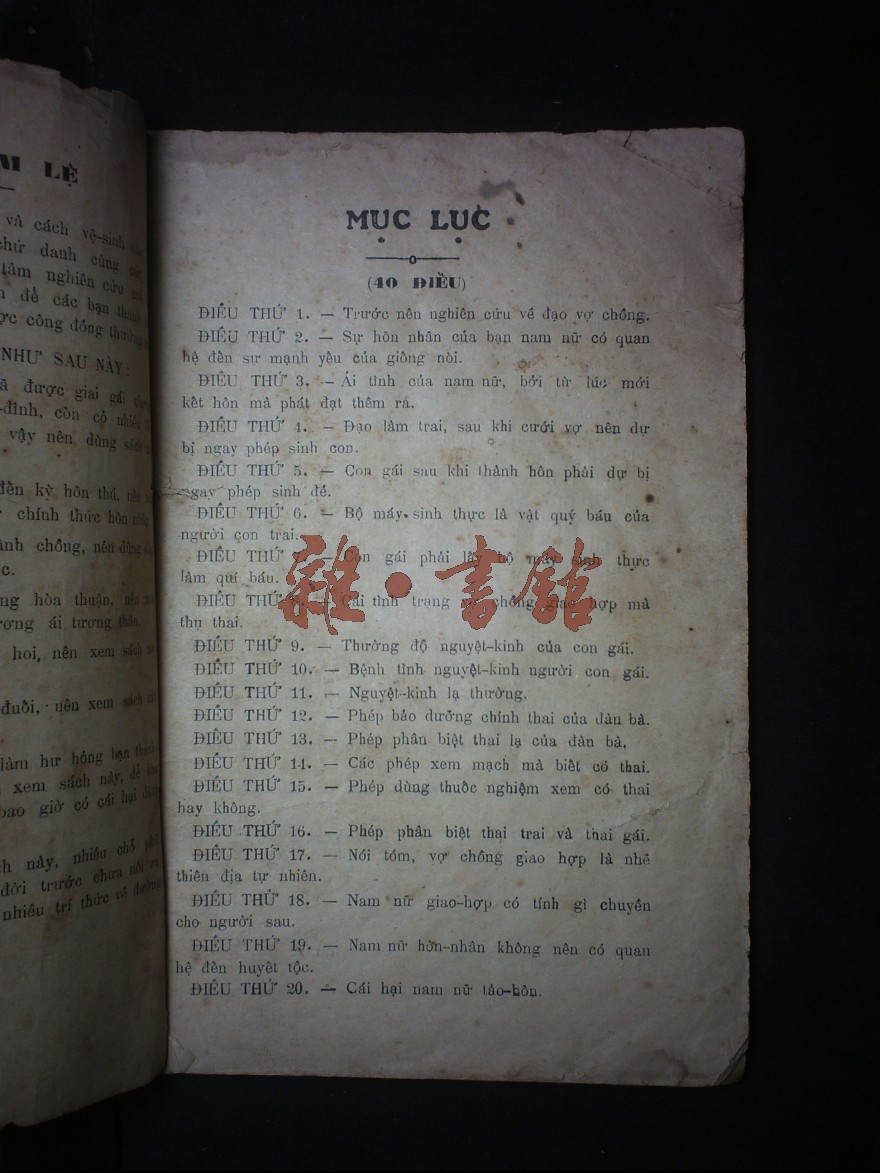 LỆ
và cách vệ-sinh
danh cùng
tâm nghiên cứu
để các bạn thanh
công đồng thường
NHƯ SAU NÀY:
được giai gái
-đình, còn có nhiều
vậy nên dùng sách
đến kỳ hôn thú, nên
chính thức hôn
chồng, nên dùng
hòa thuận, nên
ái tương thân.
hoi, nên xem sách
đuổi, nên xem sách
làm hư hỏng bạn thanh
xem sách này, để
bao giờ có cái hại
này, nhiều chỗ
đời trước chưa nói
nhiều trí thức về đường
MỤC LỤC
(40 ĐIỀU)
ĐIỀU THỨ 1. — Trước nên nghiên cứu về đạo vợ chồng.
ĐIỀU THỨ 2. — Sự hôn nhân của bạn nam nữ có quan
hệ đến sự mạnh yếu của giống nòi.
ĐIỀU THỨ 3. — Ái tình của nam nữ, bởi từ lúc mới
kết hôn mà phát đạt thêm ra.
ĐIỀU THỨ 4. — Đạo làm trai, sau khi cưới vợ nên dự
bị ngay phép sinh con.
ĐIỀU THỨ 5. — Con gái sau khi thành hôn phải dự bị
ngay phép sinh đẻ.
ĐIỀU THỨ 6. — Bộ máy sinh thực là vật quý báu của
người con trai.
ĐIỀU THỨ 7. — Con gái phải lấy bộ máy sinh thực
làm quí báu.
ĐIỀU THỨ 8. — Cái tình trạng vợ chồng giao hợp mà
thụ thai.
雜・書館
ĐIỀU THỨ 9. — Thường độ nguyệt-kinh của con gái.
ĐIỀU THỨ 10. — Bệnh tình nguyệt-kinh người con gái.
ĐIỀU THỨ 11. — Nguyệt-kinh lạ thường.
ĐIỀU THỨ 12. — Phép bảo dưỡng chính thai của đàn bà.
ĐIỀU THỨ 13. — Phép phân biệt thai lạ của đàn bà.
ĐIỀU THỨ 14. — Các phép xem mạch mà biết có thai.
ĐIỀU THỨ 15. — Phép dùng thuốc nghiệm xem có thai
hay không.
ĐIỀU THỨ 16. — Phép phân biệt thai trai và thai gái.
ĐIỀU THỨ 17. — Nói tóm, vợ chồng giao hợp là nhẽ
thiên địa tự nhiên.
ĐIỀU THỨ 18. — Nam nữ giao-hợp có tính gì chuyền
cho người sau.
ĐIỀU THỨ 19. — Nam nữ hôn-nhân không nên có quan
hệ đến huyết tộc.
ĐIỀU THỨ 20. — Cái hại nam nữ tảo-hôn.